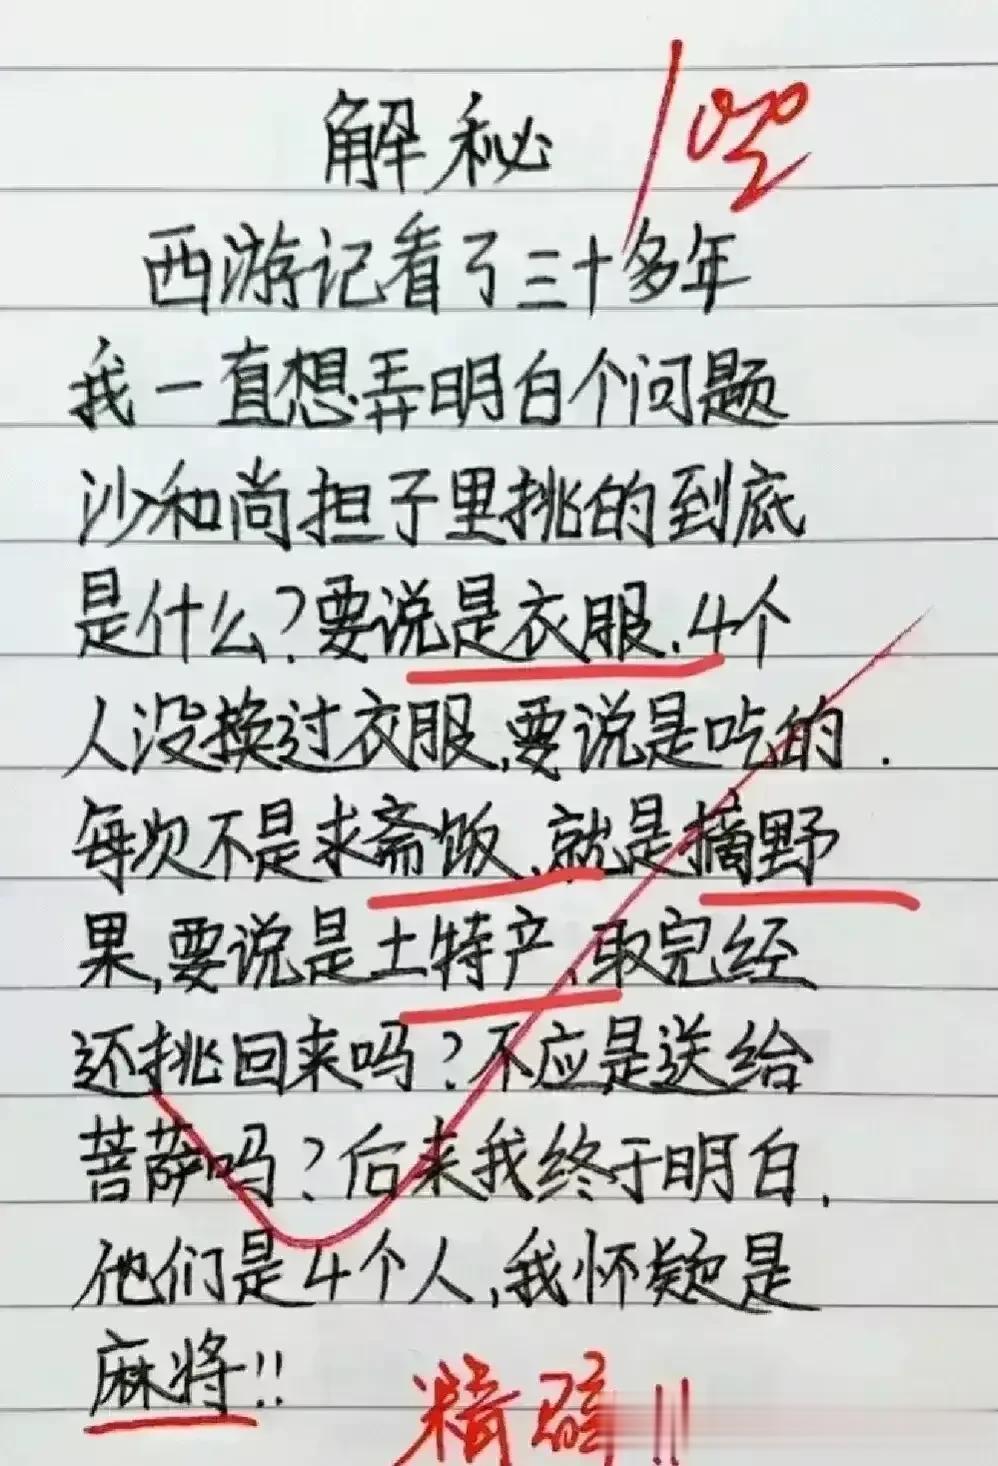 解秘
西游记看了三十多年
我一直想弄明白个问题
沙和尚担子里挑的到底
是什么?要说是衣服,4个
人没换过衣服,要说是吃的.
每次不是求斋饭,就是摘野
果,要说是土特产,取完经
还挑回来吗?不应是送给
菩萨吗?后来我终于明白,
他们是4个人,我怀疑是
麻将!!
精辟!!